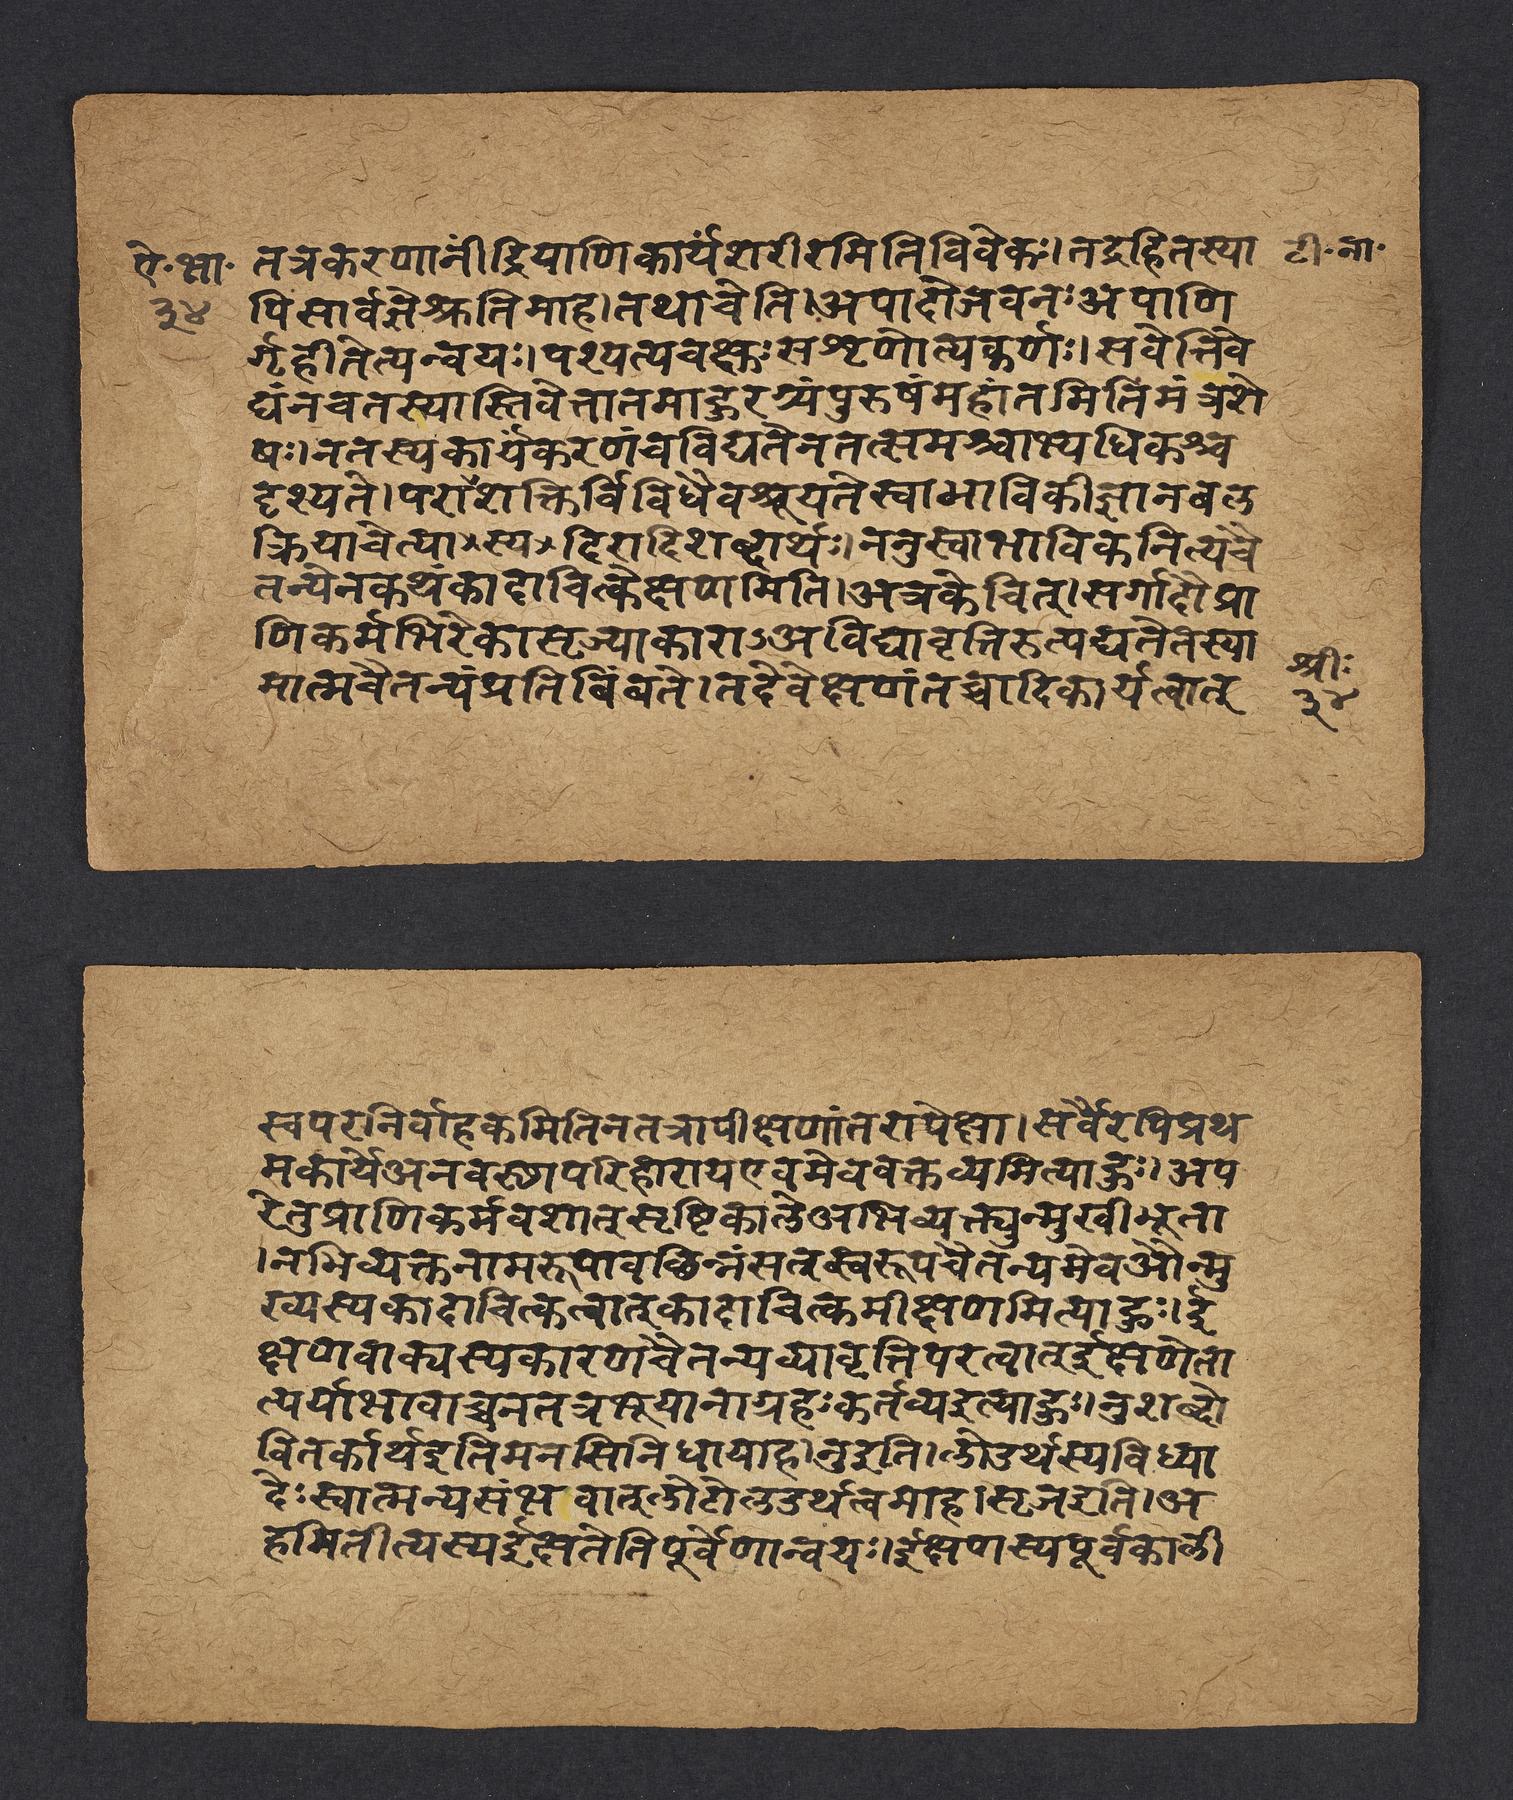 ऐ·भा· तत्रकरणानींद्रियाणिकार्यंशरीरमितिविवेकः।तद्रहितस्या टी·ना·
३४ पिसार्वज्ञेश्रुतिमाह।तथाचेति।अपादोजवनःअपाणि
र्गृहीतेत्यन्वयः।पश्यत्यचक्षुःसशृणोत्यकर्णः।सवेत्तिवे
द्यंनचतस्यास्तिवेत्तातमाहुरग्र्यंपुरुषंमहांतमितिमंत्रशे
षः।नतस्यकार्यंकरणंचविद्यतेनतत्समश्चाभ्यधिकश्च
दृश्यते।पराशक्तिर्विविधैवश्रूयतेस्वाभाविकीज्ञानबल
क्रियाचेत्या×स्य×दिरादिशब्दार्थः।ननुस्वाभाविकनित्यचै
तन्येनकथंकादाचित्केक्षणमिति।अत्रकेचित्।सर्गादौप्रा
णिकर्मभिरेकासृज्याकाराऽअविद्यावृत्तिरुत्पद्यतेतस्या
मात्मचैतन्यंप्रतिबिंबते।तदेवेक्षणंतच्चादिकार्यत्वात्
श्रीः
३४
स्वपरनिर्वाहकमितिनतत्रापीक्षणांतरापेक्षा।सर्वैरपिप्रथ
मकार्येअनवस्थापरिहारायएवमेववक्तव्यमित्याहुः।अप
रेतुप्राणिकर्मवशात्सृष्टिकालेअभिव्यक्त्युन्मुखीभूता
।नभिव्यक्तनामरूपावछिन्नंसत्स्वरूपचैतन्यमेवऔन्मु
ख्यस्यकादाचित्कत्वात्कादाचित्कमीक्षणमित्याहुः।ई
क्षणवाक्यस्यकारणचैतन्यव्यावृत्तिपरत्वात्ईक्षणेता
त्पर्याभावाच्चनतत्रभूयानाग्रहःकर्तव्यइत्याहुः।नुशब्दो
वितर्कार्थइतिमनसिनिधायाह।नुइति।लोडर्थस्यविध्या
देःस्वात्मन्यसंभवात्लोटोलडर्थत्वमाह।सृजइति।अ
हमितीत्यस्यईक्षतेतिपूर्वेणान्वयः।ईक्षणस्यपूर्वकाली